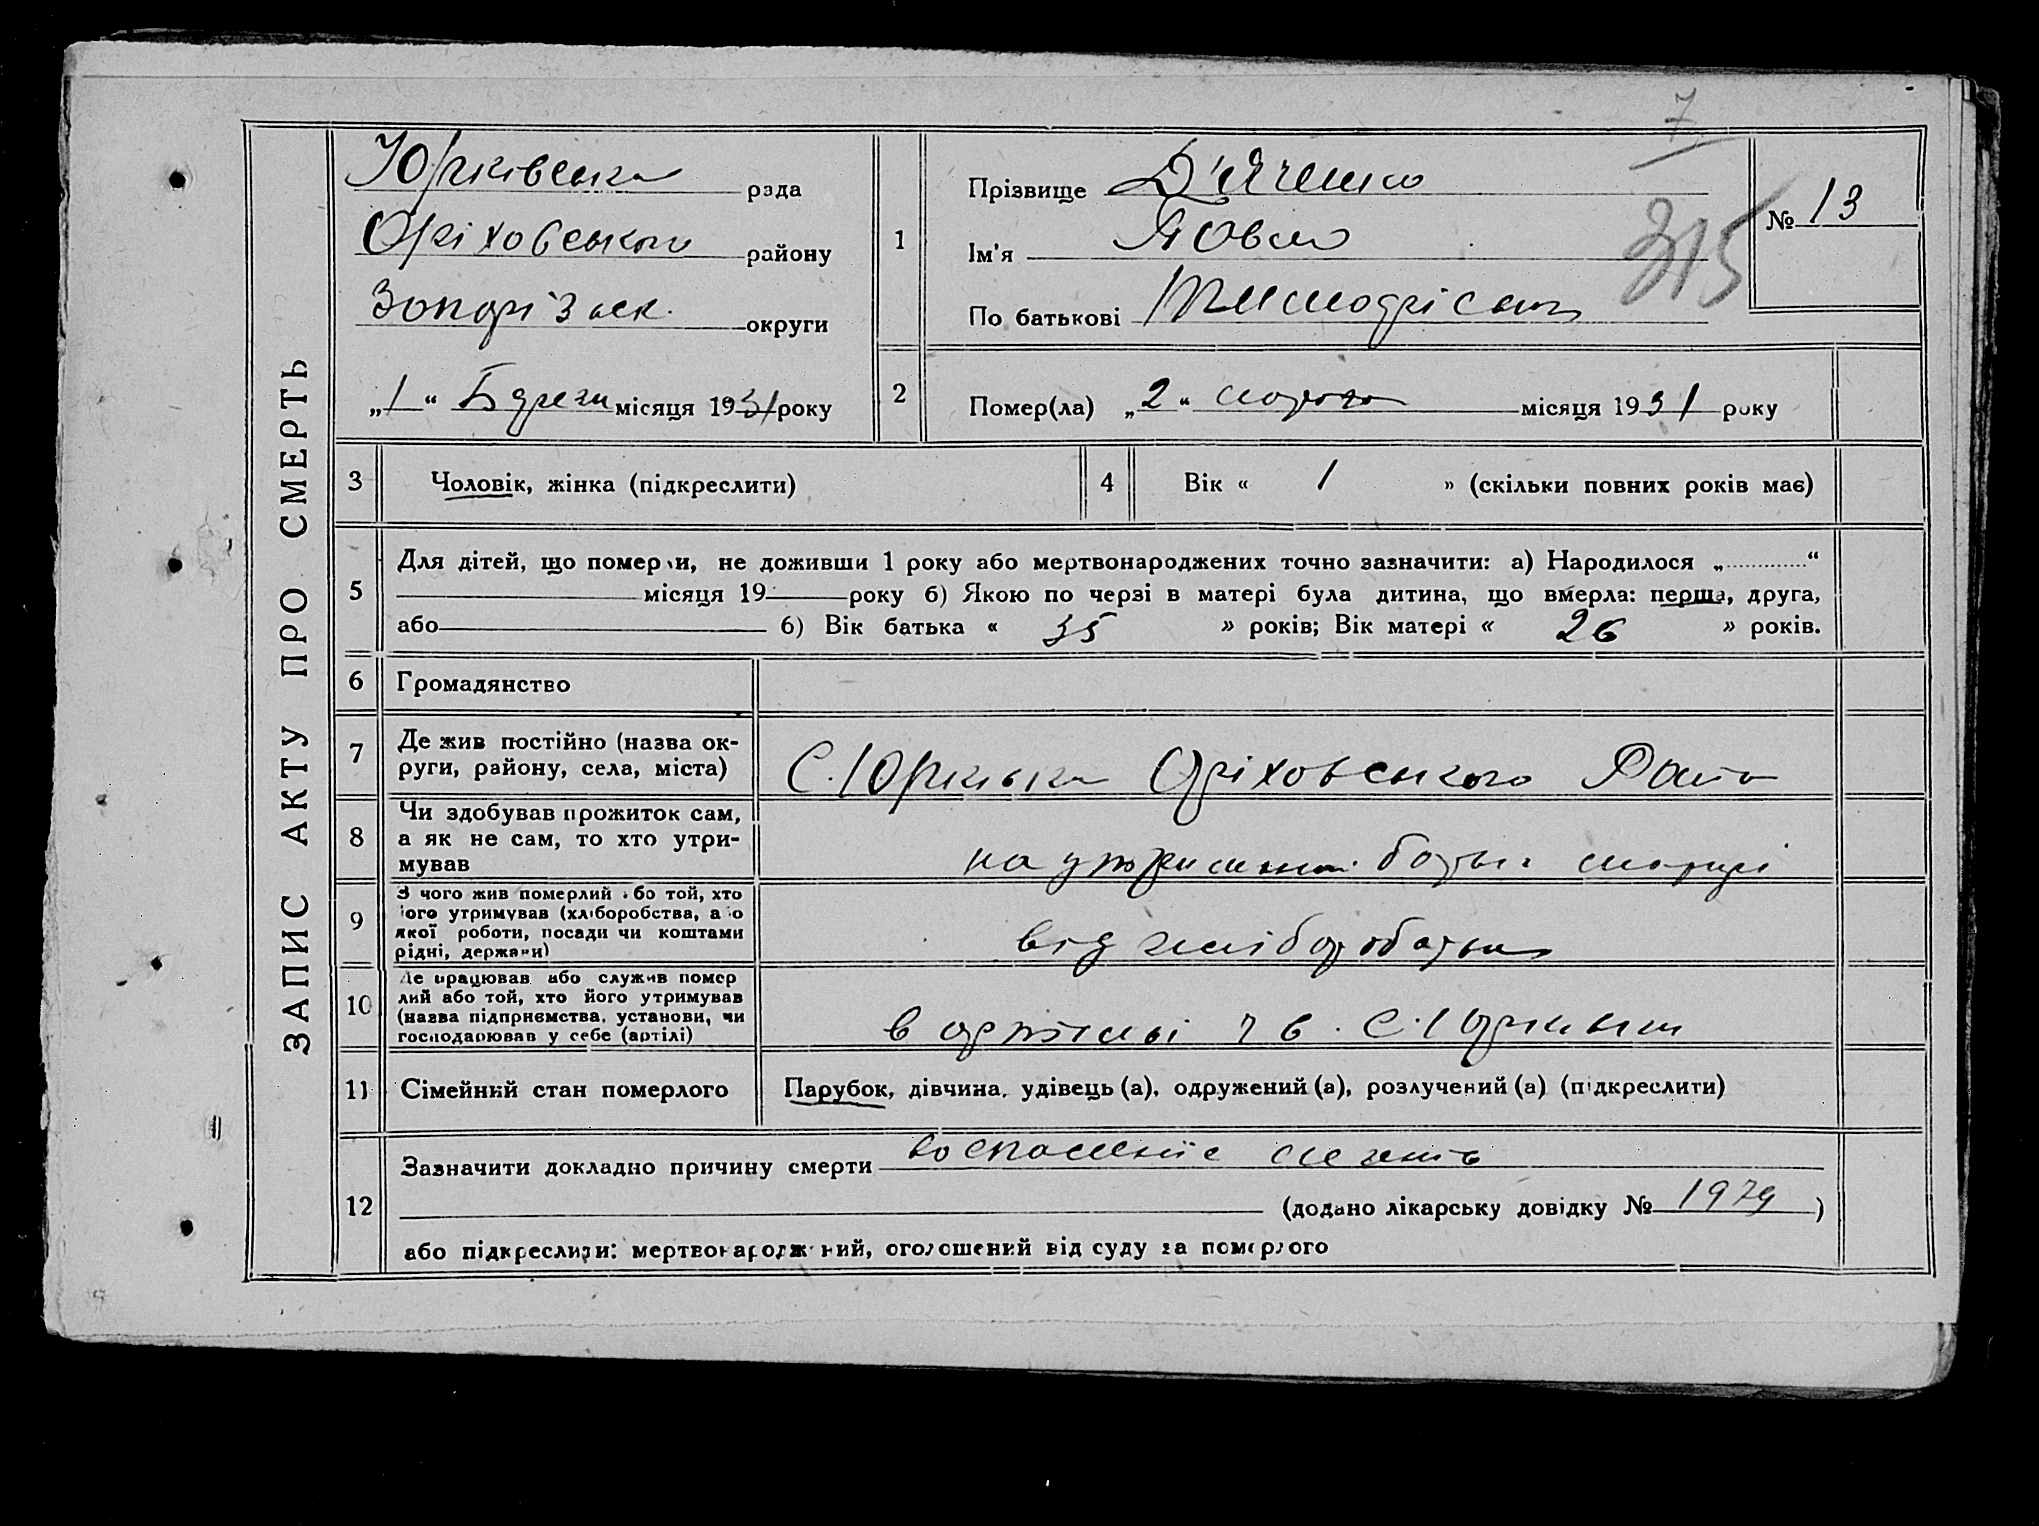 7
315
ЗАПИС АКТУ ПРО СМЕРТЬ
Юрківська рада
Оріховського району
Запорізьк. округи
„1“ Березня місяця 1931 року
1
Прізвище Д'яченко
Ім'я Павло
По батькові Тимофієвич
№ 13
2
Помер(ла) „2“ лютого місяця 1931 року
3 Чоловік, жінка (підкреслити)
4 Вік « 1 » (скільки повних років має)
5 Для дітей, що померли, не доживши 1 року або мертвонароджених точно зазначити: а) Народилося „ “
місяця 19 року б) Якою по черзі в матері була дитина, що вмерла: перша, друга,
або б) Вік батька « 35 » років; Вік матері « 26 » років.
6 Громадянство
7 Де жив постійно (назва ок-
руги, району, села, міста)
С. Юрківка Оріховського Району
8 Чи здобував прожиток сам,
а як не сам, то хто утри-
мував
на утриманні батька матері
9 З чого жив померлий або той, хто
його утримував (хліборобства, або
якої роботи, посади чи коштами
рідні, держави)
від хліборобства
10 Де працював або служив помер
лий або той, хто його утримував
(назва підприємства, установи, чи
господарював у себе (артілі)
в артілі с. Юрківки
11 Сімейний стан померлого
Парубок, дівчина, удівець (а), одружений (а), розлучений (а) (підкреслити)
12 Зазначити докладно причину смерти воспаление легких
(додано лікарську довідку № 1979)
або підкреслити: мертвонароджений, оголошений від суду за померлого